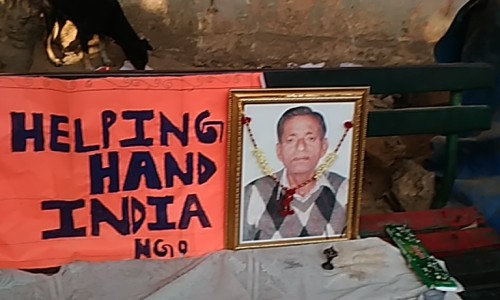 HELPING
HAND
INDIA
NGO